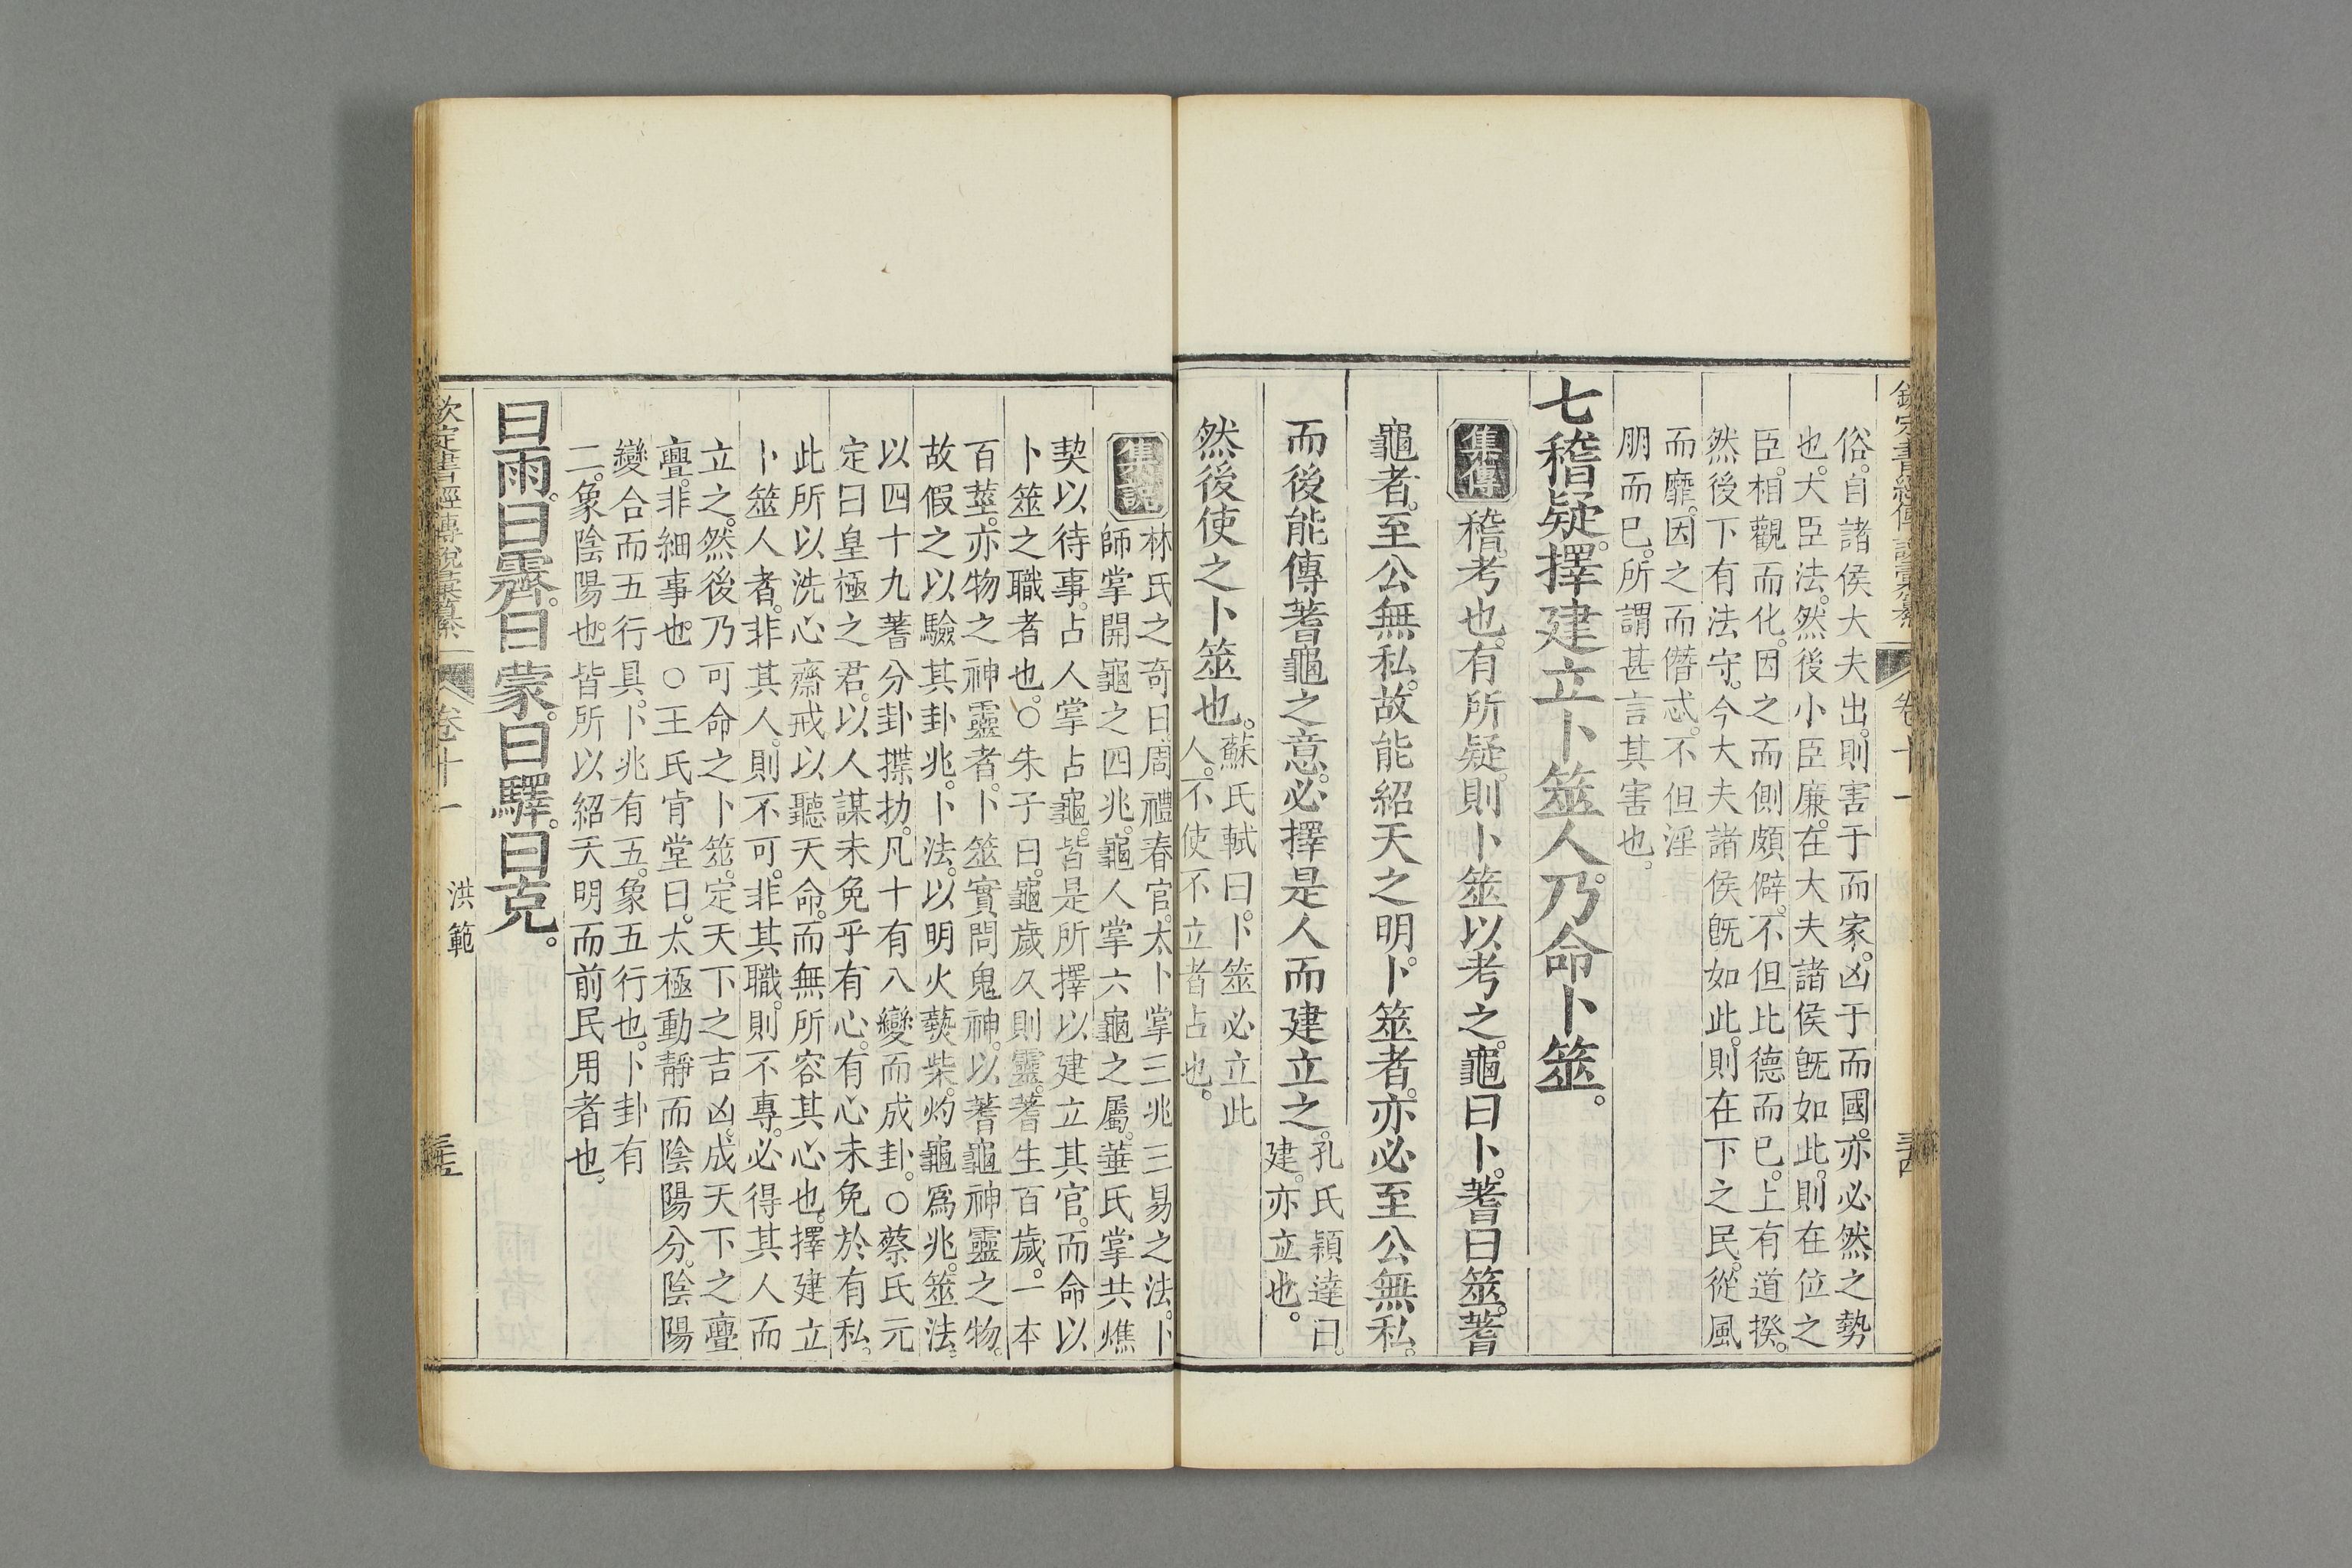 欽定書經傳說彙纂 卷十一
俗。自諸侯大夫出。則害于而家。凶于而國。亦必然之勢
也。大臣法。然後小臣廉。在大夫諸侯旣如此。則在位之
臣。相觀而化。因之而側頗僻。不但比德而已。上有道揆。
然後下有法守。今大夫諸侯旣如此。則在下之民。從風
而靡。因之而僭忒。不但淫
朋而已。所謂甚言其害也。
七稽疑。擇建立卜筮人。乃命卜筮。
集傳 稽。考也。有所疑。則卜筮以考之。龜曰卜。蓍曰筮。蓍
龜者。至公無私。故能紹天之明。卜筮者。亦必至公無私。
而後能傳蓍龜之意。必擇是人而建立之。孔氏穎達曰。
建。亦立也。
然後使之卜筮也。蘇氏軾曰。卜筮必立此
人。不使不立者占也。
集說 林氏之奇曰。周禮春官。太卜掌三兆三易之法。卜
師掌開龜之四兆。龜人掌六龜之屬。菙氏掌共燋
契以待事。占人掌占龜。皆是所擇以建立其官。而命以
卜筮之職者也。○朱子曰。龜歲久則靈。蓍生百歲。一本
百莖。亦物之神靈者。卜筮實問鬼神。以蓍龜神靈之物。
故假之以驗其卦兆。卜法。以明火爇柴。灼龜爲兆。筮法。
以四十九蓍分卦揲扐。凡十有八變而成卦。○蔡氏元
定曰皇極之君。以人謀未免乎有心。有心未免於有私。
此所以洗心齋戒。以聽天命。而無所容其心也。擇建立
卜筮人者。非其人。則不可。非其職。則不專。必得其人而
立之。然後乃可命之卜筮。定天下之吉凶。成天下之亹
亹。非細事也。○王氏肯堂曰。太極動靜而陰陽分。陰陽
變合而五行具。卜兆有五。象五行也。卜卦有
二。象陰陽也。皆所以紹天明而前民用者也。
曰雨。曰霽。曰蒙。曰驛。曰克。
欽定書經傳說彙纂 卷十一 洪範